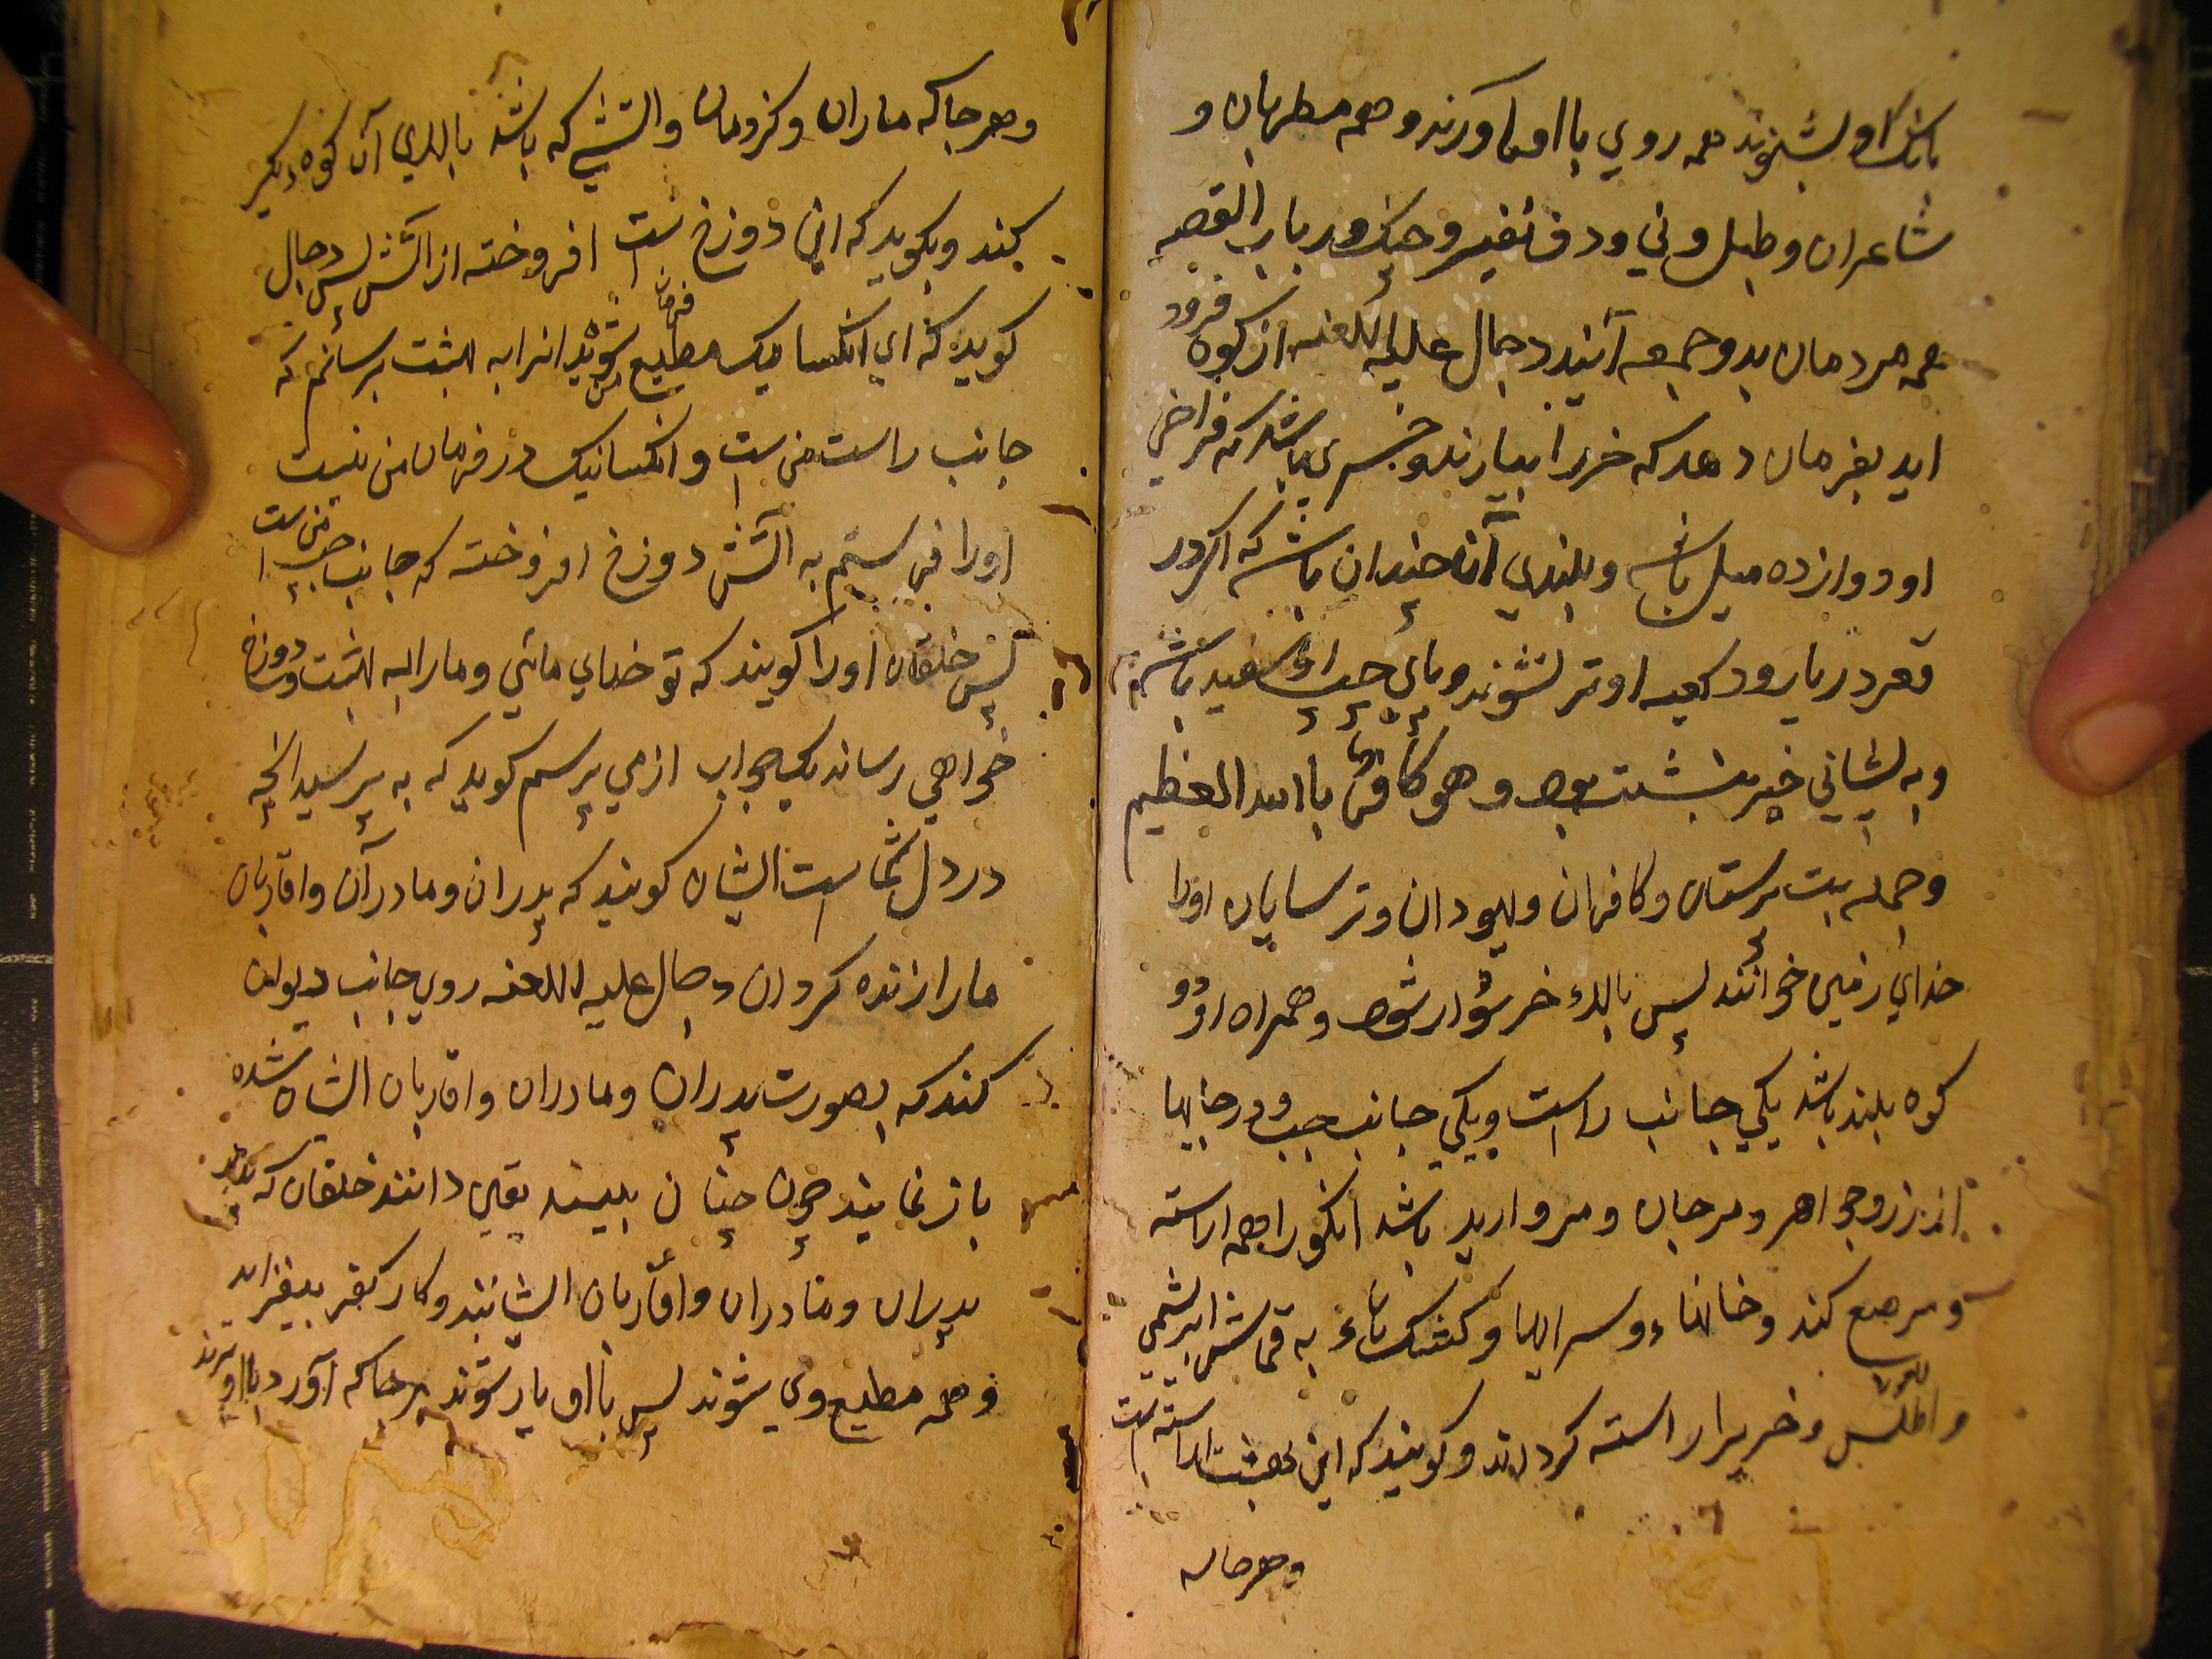 بانك او بشنوند همه روي با او اورند و همه مطربان و
شاعران و طبل و ني و دف نفير و چنك و رباب القصه
همه مردمان بدو جمعه آيند دجال عليه اللعنه از كوه فرود
ايد بفرمان دهد كه خر را بيارند و خري باشد كه فراخي
او دوازده ميل باشد و بلندي آن چندان باشد كه اكر در
قعر دريا رود كعبه او تر نشوند و پاي چپ او سفيد باشد
و به پيشاني خر نبشته بود و هو كافر باالله العظيم
و جمله بت پرستان و كافران و يهودان و ترسايان او را
خداي زمين خوانند پس بالاء خر سوار شود و همراه او دو
كوه بلند باشد يكي جانب راست و يكي جانب چپ و در جايها
از زر و جواهر و مرجان و مرواريد باشد انكوه را همه اراسته
و مرصع كند و خانهاء و سرايها و كشكهاء به قماش ابريشمي
و اطلس و حرير اراسته كردانند و كويند كه اين بهشت اراسته است
و هر جا كه
و هر جا كه ماران و كژدمان و اتشي كه باشد بالاي آن كوه ديكر
كند و بكويد كه اين دوزخ است افروخته از اتش پس دجال
كويد كه اي انكسانيك مطيع فرمان من شويد انرا به بهشت برسانم كه
جانب راست من است و انكسانيك در فرمان من نيست
او را في ستم به اتش دوزخ افروخته كه جانب چپ من است
پس خلقان او را كويند كه تو خداي مائي و ما را به بهشت و دوزخ
خواهي رسانديك جواب از مي پرسم كويد كه به پرسيد انچه
در دل شما است ايشان كويند كه پدران و مادران و اقاربان
ما را زنده كردان دجال عليه اللعنه روي جانب ديوان
كند كه بصورت پدران و مادران و اقاربان ايشان شده
باز نمايند چون چنان ببينند يقين دانند خلقان كه
پدران و مادران و اقاربان ايشانند و كار كفر بيفزايد
و همه مطيع وي شوند پس با او يار شوند هر جا كه آورد با او برند